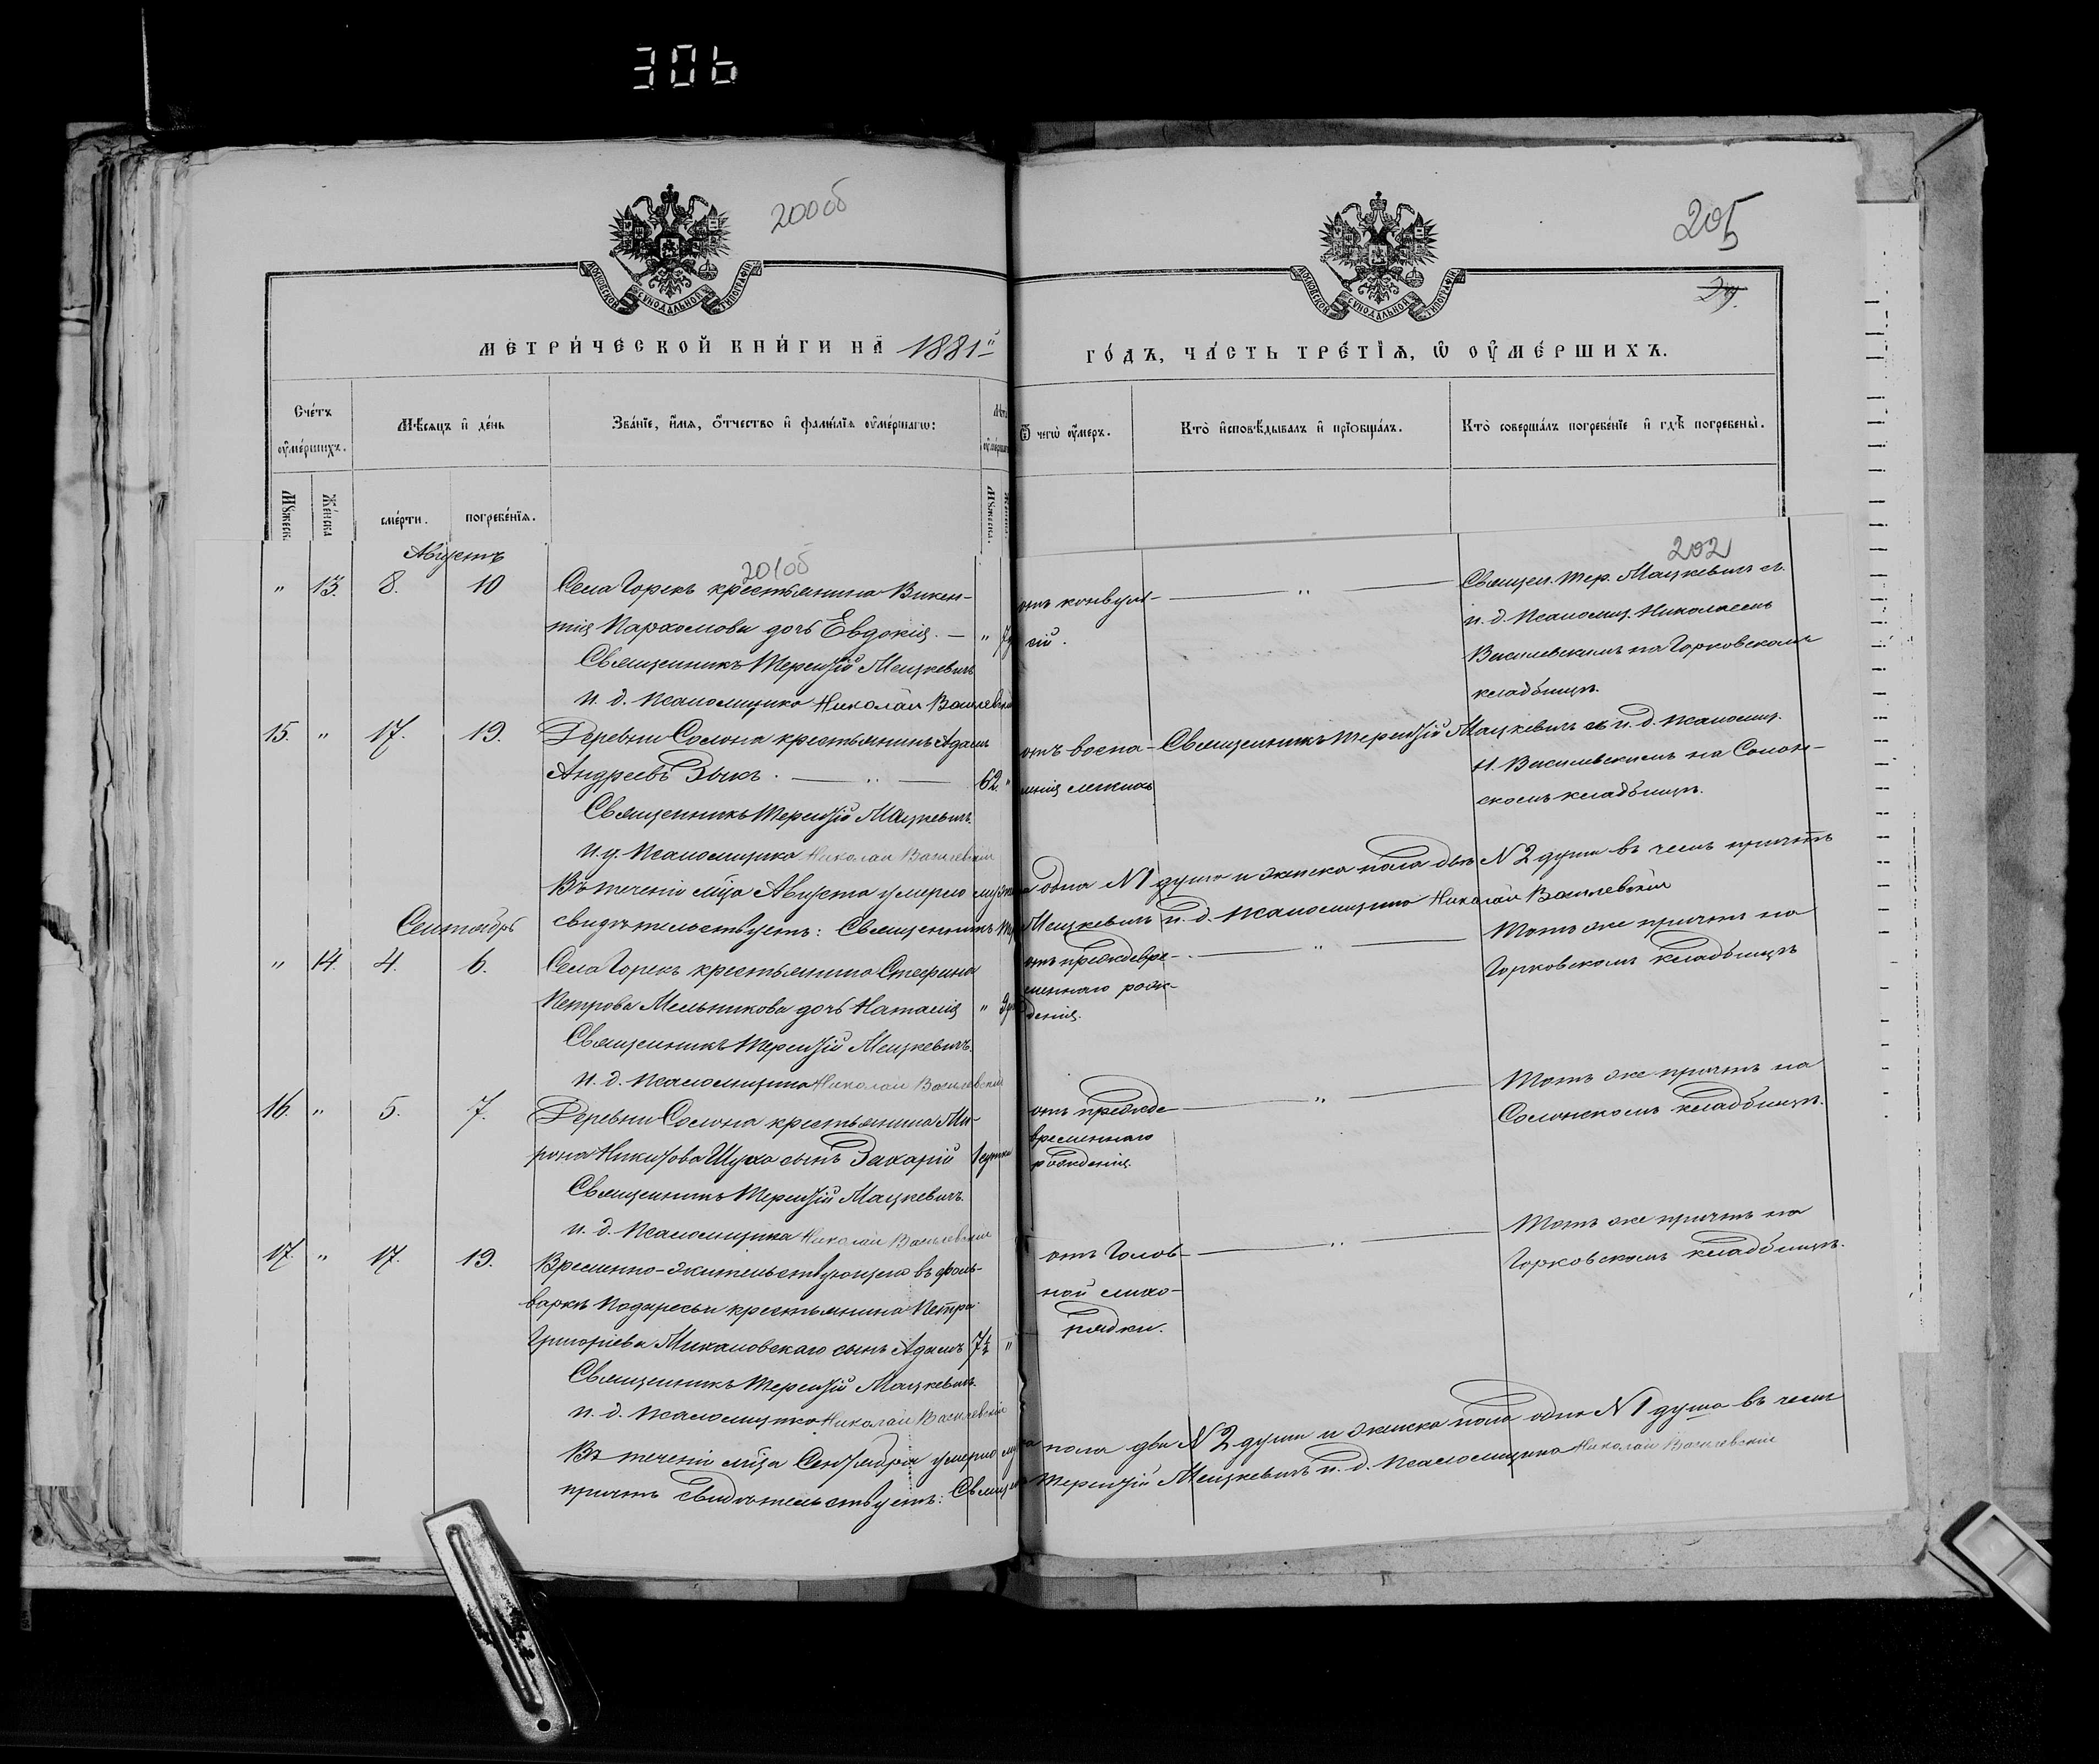 306
200об
205
29.
МОСКОВСКОЙ СѴНОДАЛЬНОЙ ТИПОГРАФІИ
МОСКОВСКОЙ СѴНОДАЛЬНОЙ ТИПОГРАФІИ
МЕТРИ́ЧЕСКОЙ КНИ́ГИ НА̀ 1881й
ГО́ДЪ, ЧА́СТЬ ТРЕ́ТІѦ, Ѡ ОУ҆МЕ́РШИХЪ.
Сче́тъ оу҆ме́ршихъ.
Мѣ́сяцъ и҆ де́нь
Зва́нїе, и҆́мя, ѻ҆́тчество и҆ фами́лїя оу҆ме́ршагѡ:
Лѣта оу҆ме́ршагѡ
Ѿ чегѡ̀ оу҆́меръ.
Кто̀ и҆сповѣ́дывалъ и҆ прїѡбща́лъ.
Кто̀ соверша́лъ погребе́нїе и҆ гдѣ̀ погребены̀.
Мꙋжеск.
Же́нска
сме́рти.
погребе́нїя.
Мꙋжеска.
Августъ
201об
202
" 13. 8. 10 Села Горекъ крестьянина Викен-
тія Пархомова дочь Евдокія. — "
Священникъ Терентій Мацкевичъ
и. д. псаломщика Николай Василевскій
отъ конвуль-
сій.
"
Священ. Тер. Мацкевичъ съ
и. д. псаломщ. Николаемъ
Василевскимъ на Горковскомъ
кладбищѣ.
15. " 17. 19. Деревни Солона крестьянинъ Адамъ
Андреевъ Зыкъ. — " — 62. "
Священникъ Терентій Мацкевичъ.
И. д. псаломщика Николай Василевскій
отъ воспа-
ленія легкихъ
Священникъ Терентій Мацкевичъ съ и. д. псаломщ.
Н. Василевскимъ на Солон-
скомъ кладбищѣ.
Въ теченіи м-ца Августа умерло мужска одна N 1 душа и женска пола двѣ N 2 души въ чемъ причтъ
свидѣтельствуетъ: Священникъ Тер. Мацкевичъ и. д. псаломщика Николай Василевскій
Сентябрь
" 14. 4. 6. Села Горекъ крестьянина Стефана
Петрова Мельникова дочь Наталія "
Священникъ Терентій Мацкевичъ.
И. д. псаломщика Николай Василевскій
отъ преждевре-
меннаго рож-
денія.
"
Тотъ же причтъ на
Горковскомъ кладбищѣ
16. " 5. 7. Деревни Солона крестьянина Ми-
рона Никитова Шуха сынъ Захарій 1 сутки
Священникъ Терентій Мацкевичъ.
и. д. псаломщика Николай Василевскій
отъ прежде-
временнаго
рожденія.
"
Тотъ же причтъ на
Солонскомъ кладбищѣ.
17. " 17. 19. Временно-жительствующаго въ фоль-
варкѣ Подаресьи крестьянина Петра
Григоріева Михаловскаго сынъ Адамъ 7½ "
Священникъ Терентій Мацкевичъ.
и. д. псаломщика Николай Василевскій
отъ голов-
ной лихо-
радки.
"
Тотъ же причтъ на
Горковскомъ кладбищѣ.
Въ теченіи м-ца Сентября умерло муж. пола двѣ N 2 души и женска пола одна N 1 душа въ чемъ
причтъ свидѣтельствуетъ: Священ. Терентій Мацкевичъ и. д. псаломщика Николай Василевскій